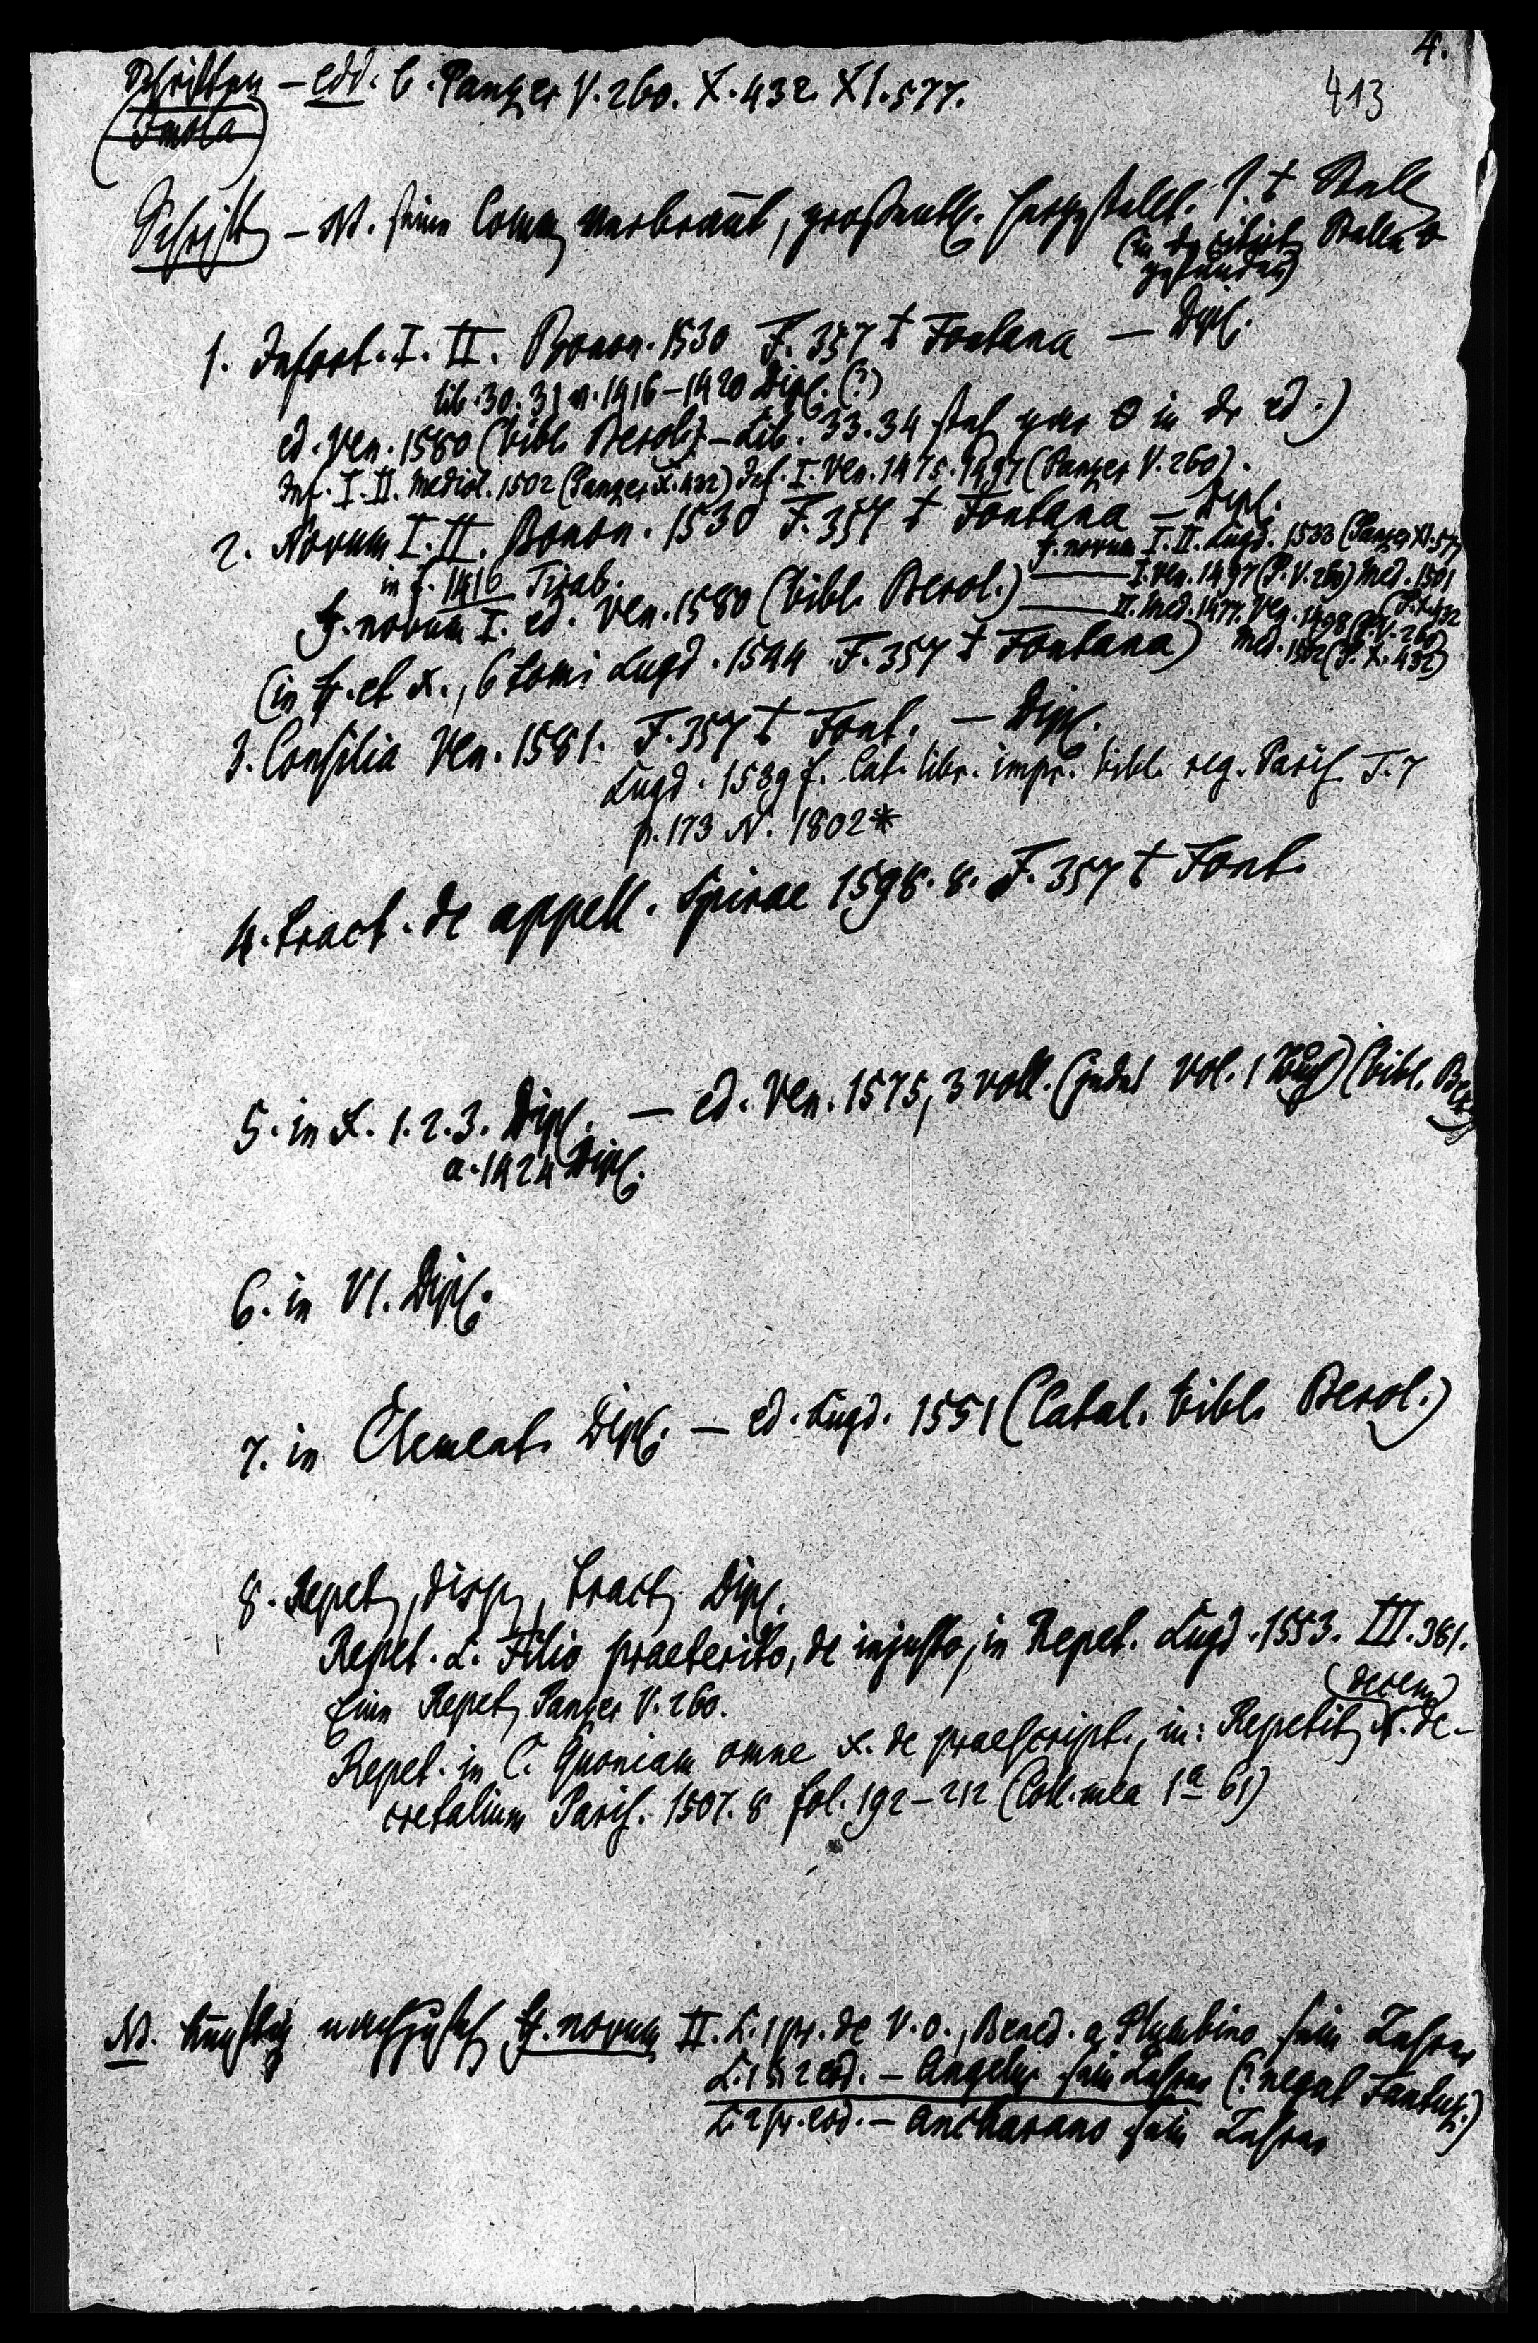 4.
413
Schriften – edd. b. Panzer V. 260. X. 432 XI. 577.
(Imola)
Schriften – N. seine Comm verbrannt, großentheils hergestellt.
gefunden)
1. Infort. I. II. Bonon. 1530 F. 357 t Fontana – Dipl.
lib. 30. 31 a. 1416–1420 Dipl. (?)
ed. Ven. 1580 (bibl. Berol.) – Lib. 33. 34 in der ed.)
Inf. I. II. Mediol. 1502 (Panzer X. 432) Inf. I. Ven. 1475. 1497 (Panzer V. 260).
2. Novum I. II. Bonon. 1530 F. 357 t Fontana – Dipl.
ff. novum I. II. Lugd. 1533 (Panzer XI. 577
in f. 1416 Tirab.
I. Ven. 1497 (P. V. 260) Med. 1501
(P. X. 432
ff. novum I. ed. Ven. 1580 (bibl. Berol.)
II. Med. 1477. Ven. 1498 (P. V. 260)
Med. 1502 (P. X. 432)
(in ff. et X., 6 tomi Lugd. 1544 F. 357 t Fontana)
3. Consilia Ven. 1581. F. 357 t Font. – Dipl.
Lugd. 1539 f. Cat. libr. impr. bibl. reg. Paris T. 7
p. 173 N. 1802*
4. tract. de appell. Spirae 1598. 8. F. 357 t Font.
5. in X. 1. 2. 3. Dipl. – ed. Ven. 1575, 3 voll. (jedes vol. 1 Buch) (bibl. Ber
a. 1424 Dipl.
6. in VI. Dipl.
7. in Clement. Dipl. – ed. Lugd. 1551 (Catal. bibl. Berol.)
8. Repet, disp, tract, Dipl.
Repet. L. Filio praeterito, de injusto, in Repet. Lugd. 1553. III. 381.
Eine Repet, Panzer V. 260.
(decem)
Repet. in C. Quoniam omne X. de praescript., in: Repetit X. de-
cretalium Paris. 1507. 8 fol. 192–212 (Coll. mea 1a 61)
N. künftig nachzusehen ff. novum II. L. 1 pr. de V. O., Bened. a Plumbino sein Lehrer
L. 1 § 2 eod. – Angelus sein Lehrer (? negat Fantuzzi)
L. 2 pr. eod. – Ancharano sein Lehrer